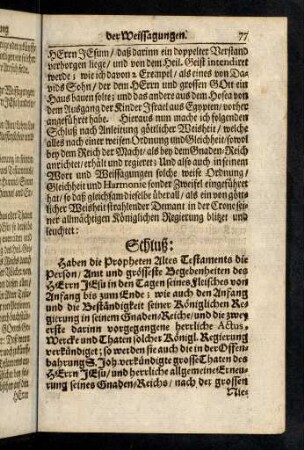 der Weissagungen. 77
HErrn JEsum / daß darinn ein doppelter Verstand
verborgen liege / und von dem Heil. Geist intendiret
werde ; wie ich davon 2 Exempel / als eines von Da-
vids Sohn / der dem HErrn und grossen GOtt ein
Haus bauen solte; und das andere aus dem Hosea von
dem Ausgang der Kinder Israel aus Egypten / vorher
angeführet habe. Hieraus nun mache ich folgenden
Schluß nach Anleitung göttlicher Weisheit / welche
alles nach einer weisen Ordnung und Gleichheit / sowol
bey dem Reich der Macht / als bey dem Gnaden-Reich
anrichtet / erhält und regieret: Und also auch in seinem
Wort und Weissagungen solche weise Ordnung /
Gleichheit und Harmonie sonder Zweifel eingeführet
hat / so daß gleichsam dieselbe überall / als ein von gött-
licher Weisheit strahlender Demant in der Crone seiner
allmächtigen Königlichen Regierung blitzet und
leuchtet:
Schluß:
Haben die Propheten Altes Testaments die
Person / Amt und grösseste Begebenheiten des
HErrn JEsu in den Tagen seines Fleisches von
Anfang bis zum Ende ; wie auch den Anfang
und die Beständigkeit seiner Königlichen Re-
gierung in seinem Gnaden-Reiche / und die zwey
erste darinn vorgegangene herrliche Actus,
Wercke und Thaten solcher Königl. Regierung
verkündiget; so werden sie auch die in der Offen-
bahrung S. Joh. verkündigte grosse Thaten des
HErrn JEsu / und herrliche allgemeine Erneu-
rung seines Gnaden-Reichs / nach der grossen
Nie-